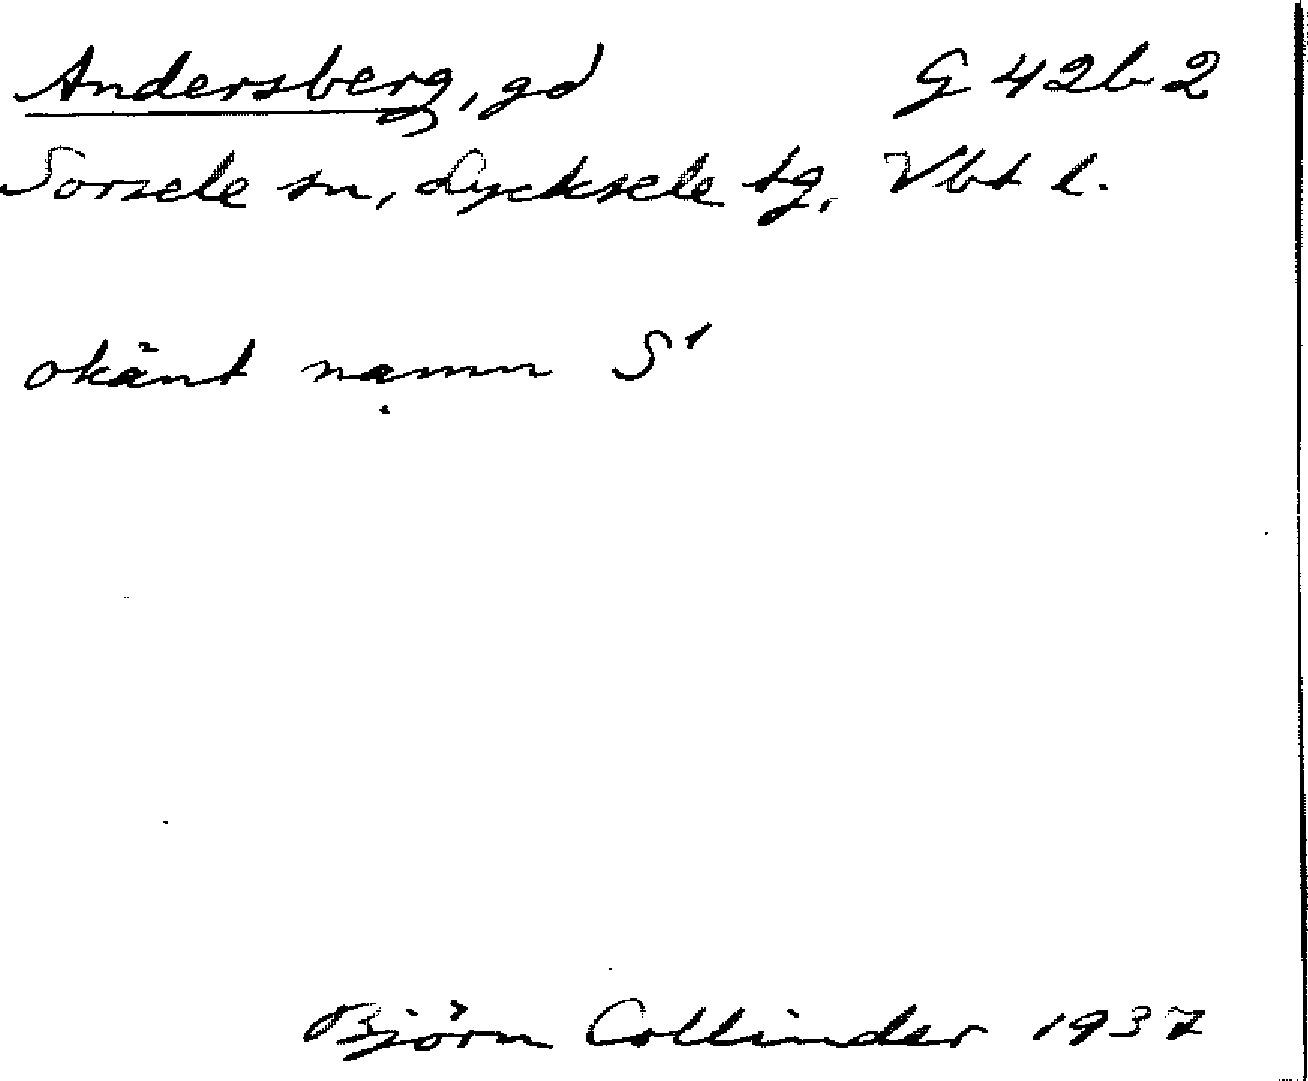 Andersberg, gd G 42b 2
Sorsele sn, Lycksele tg, Vbt l.
okänt namn S¹
Björn Collinder 1937